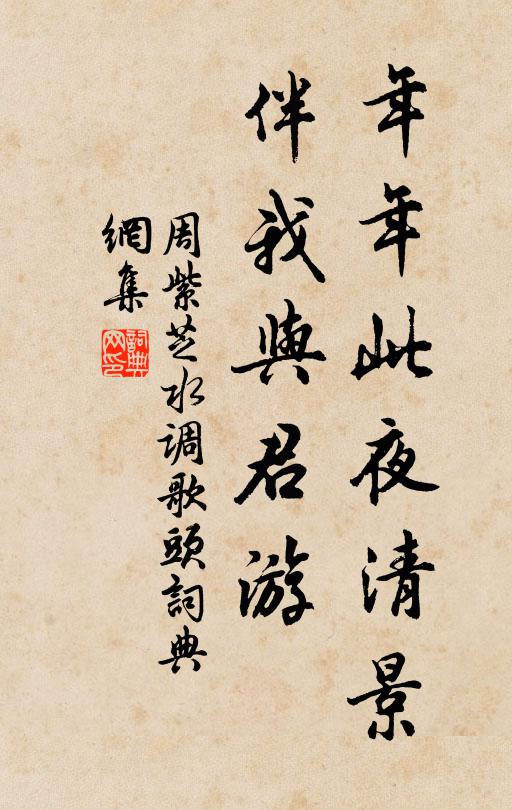 年年此夜清景
伴我與君游
周紫芝水调歌頭詞典
網集
詞典
网印